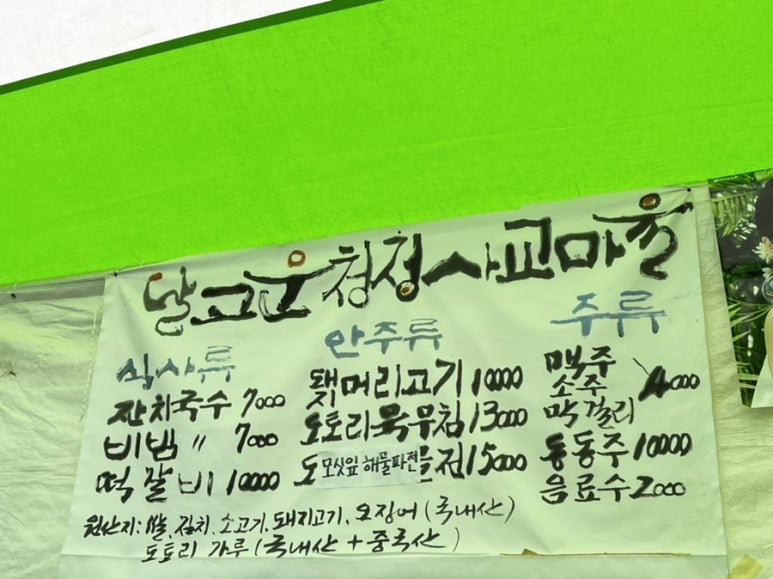 달고운 청정사교마을
식사류
잔치국수 7000
비빔 〃 7000
떡갈비 10000
안주류
돼지머리고기 10000
도토리묵무침 13000
도 모싯잎 해물파전 전 15000
주류
맥주
소주 4000
막걸리
동동주 10000
음료수 2000
원산지: 쌀, 김치, 소고기, 돼지고기, 오징어 (국내산)
도토리 가루 (국내산 + 중국산)